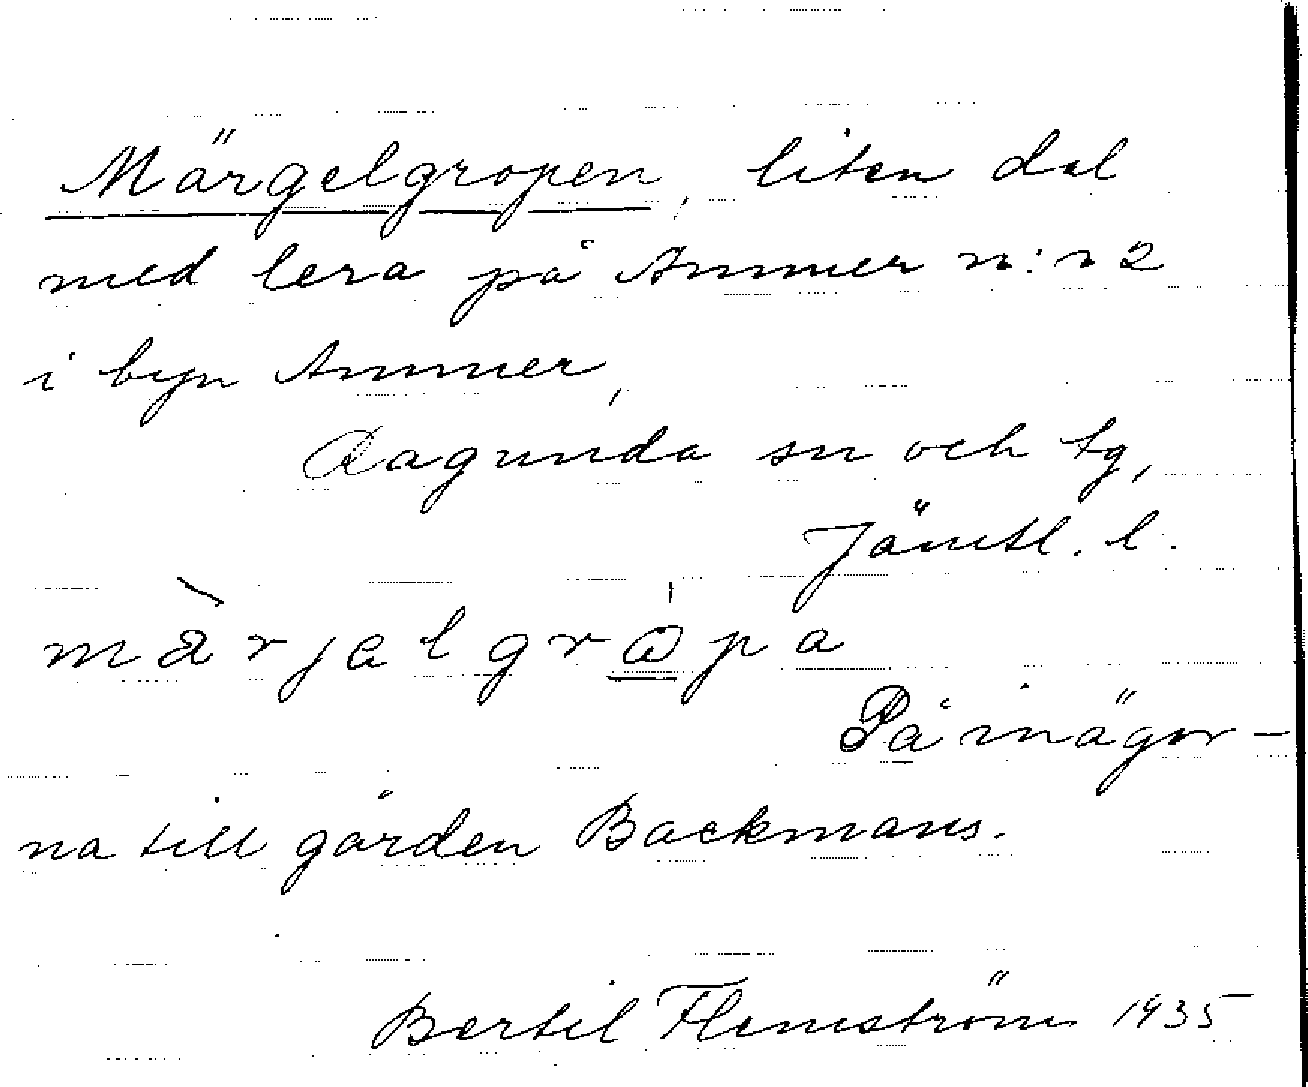 Märgelgropen, liten dal
med lera på Ammer n:r 2
i byn Ammer,
Ragunda sn och tg,
Jämtl. l.
På inägor-
na till gården Backmans.
Bertil Flemström 1935